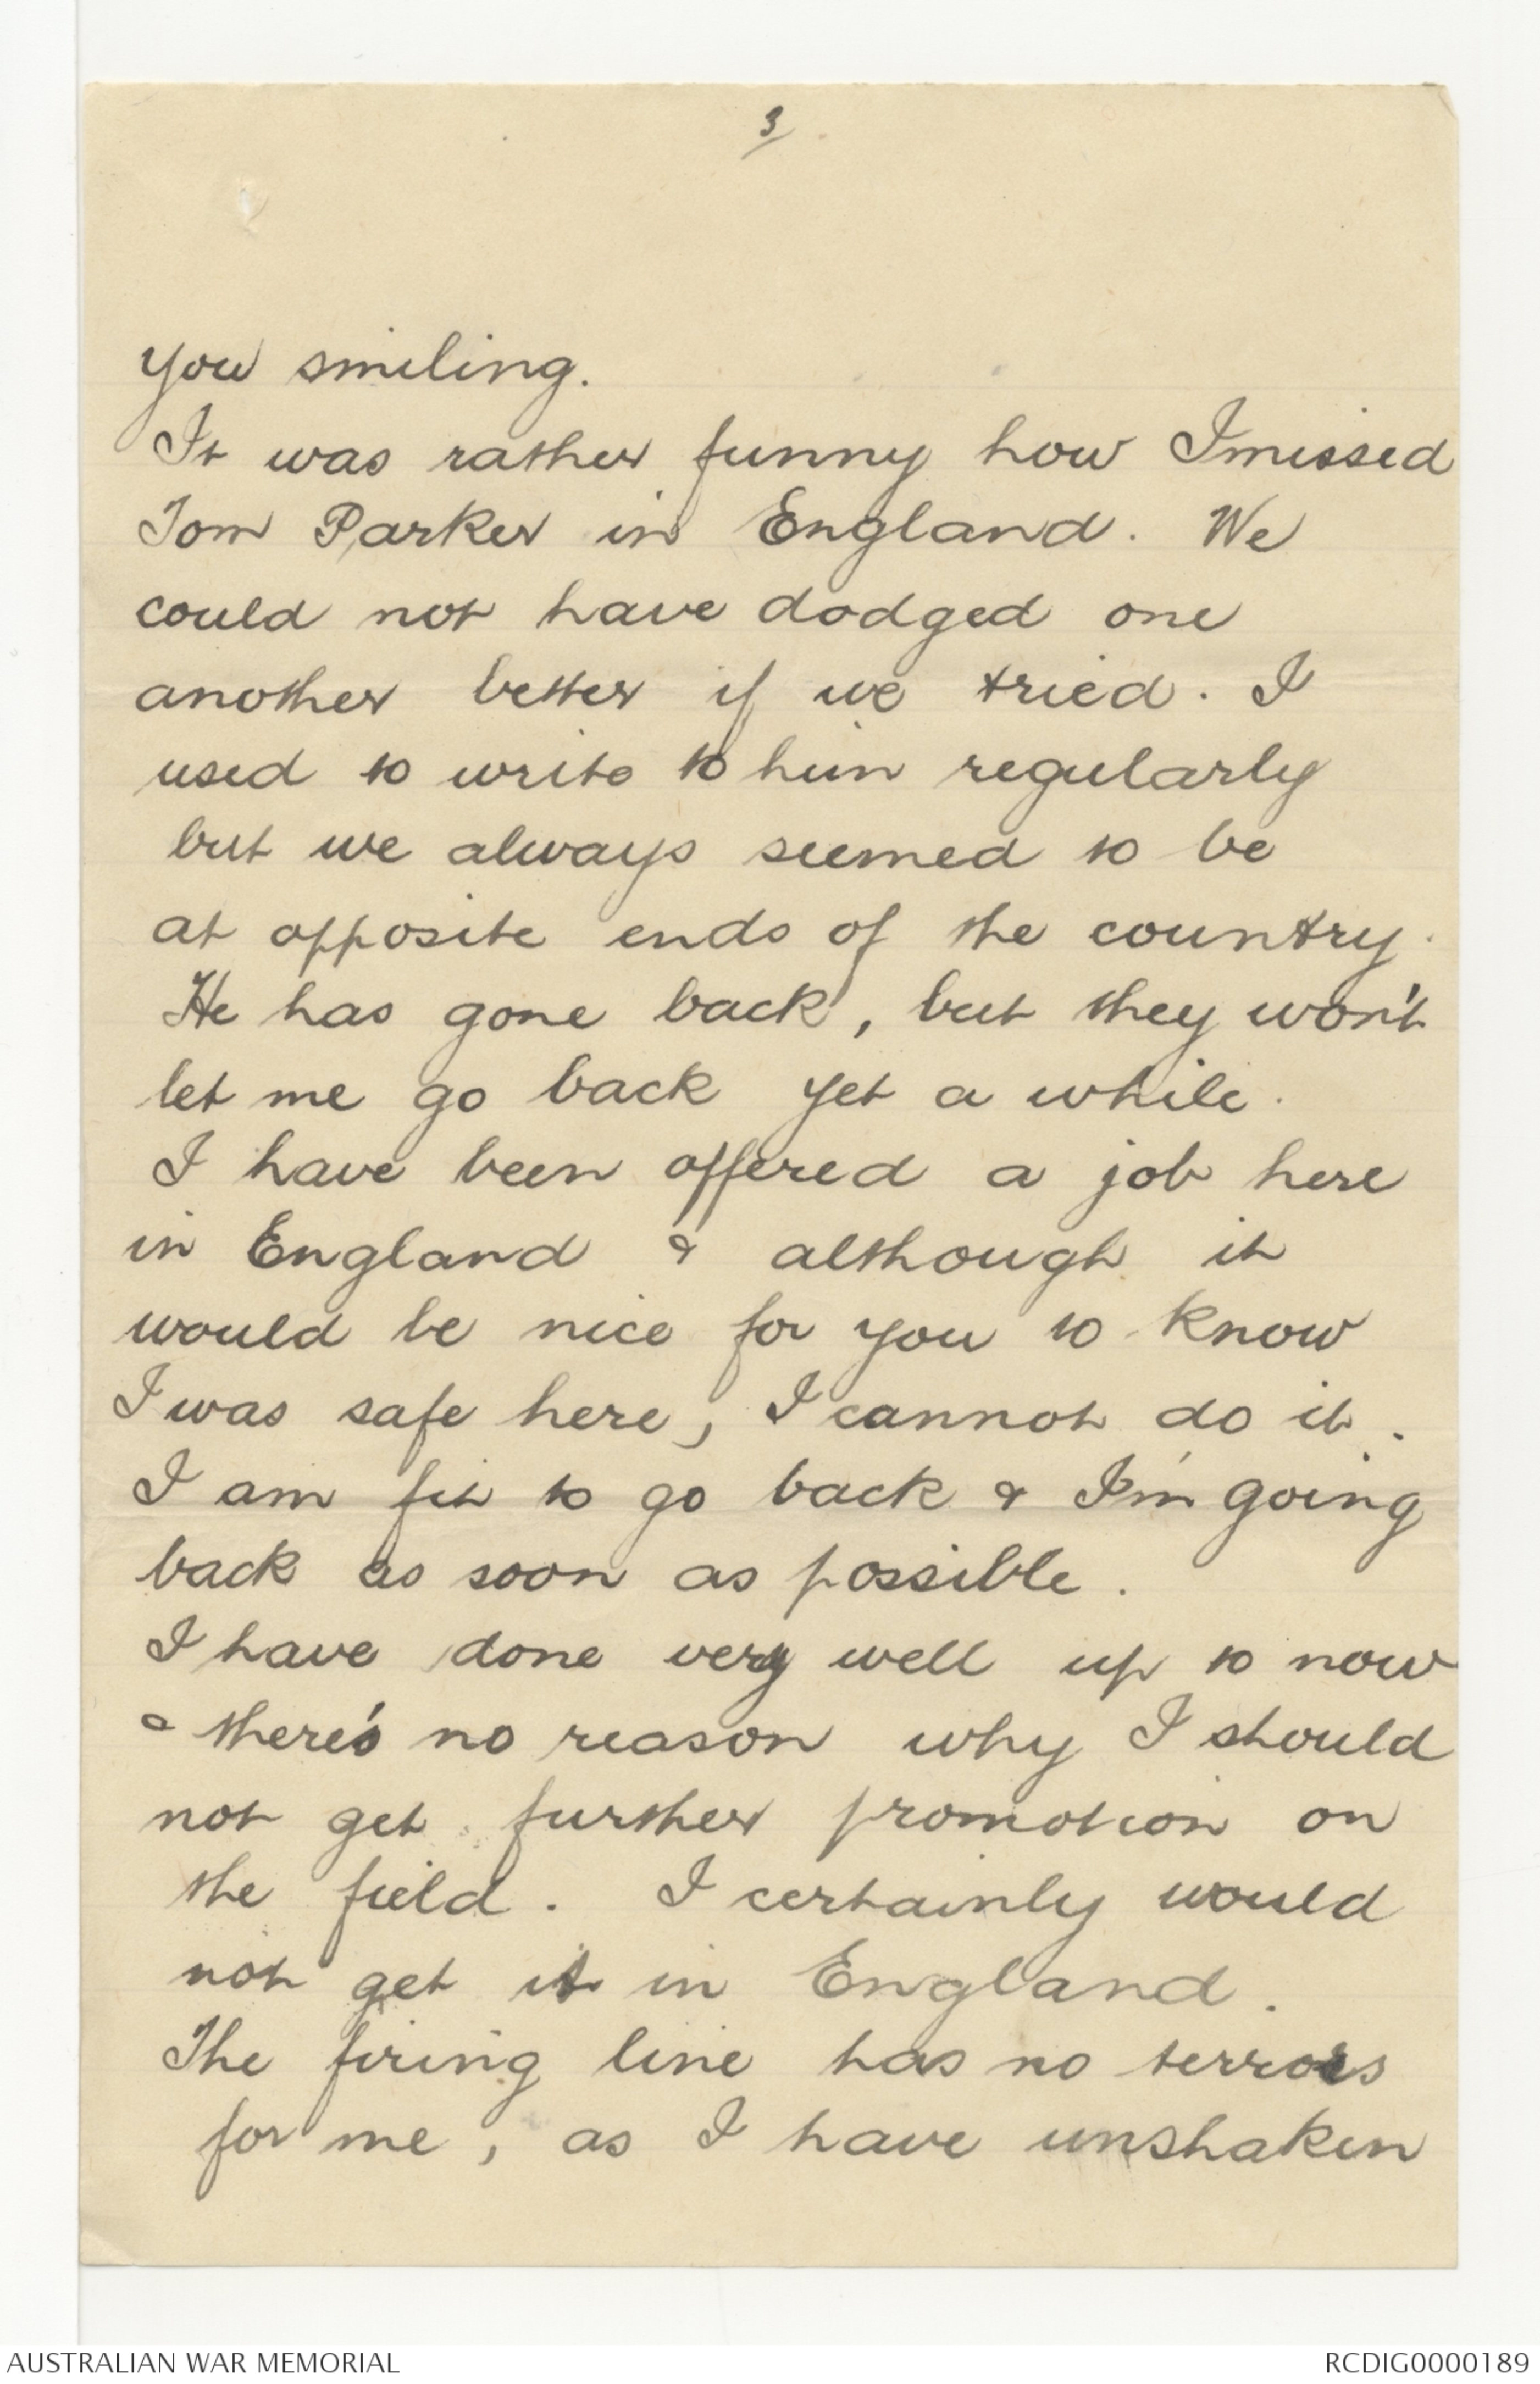 3/
you smiling.
It was rather funny how I missed
Tom Parker in England. We
could not have dodged one
another better if we tried. I
used to write to him regularly
but we always seemed to be
at opposite ends of the country.
He has gone back, but they won't
let me go back yet a while.
I have been offered a job here
in England & although it
would be nice for you to know
I was safe here, I cannot do it.
I am fit to go back & I'm going
back as soon as possible.
I have done very well up to now
& there's no reason why I should
not get further promotion on
the field. I certainly would
not get it in England.
The firing line has no terrors
for me, as I have unshaken
AUSTRALIAN WAR MEMORIAL
RCDIG0000189